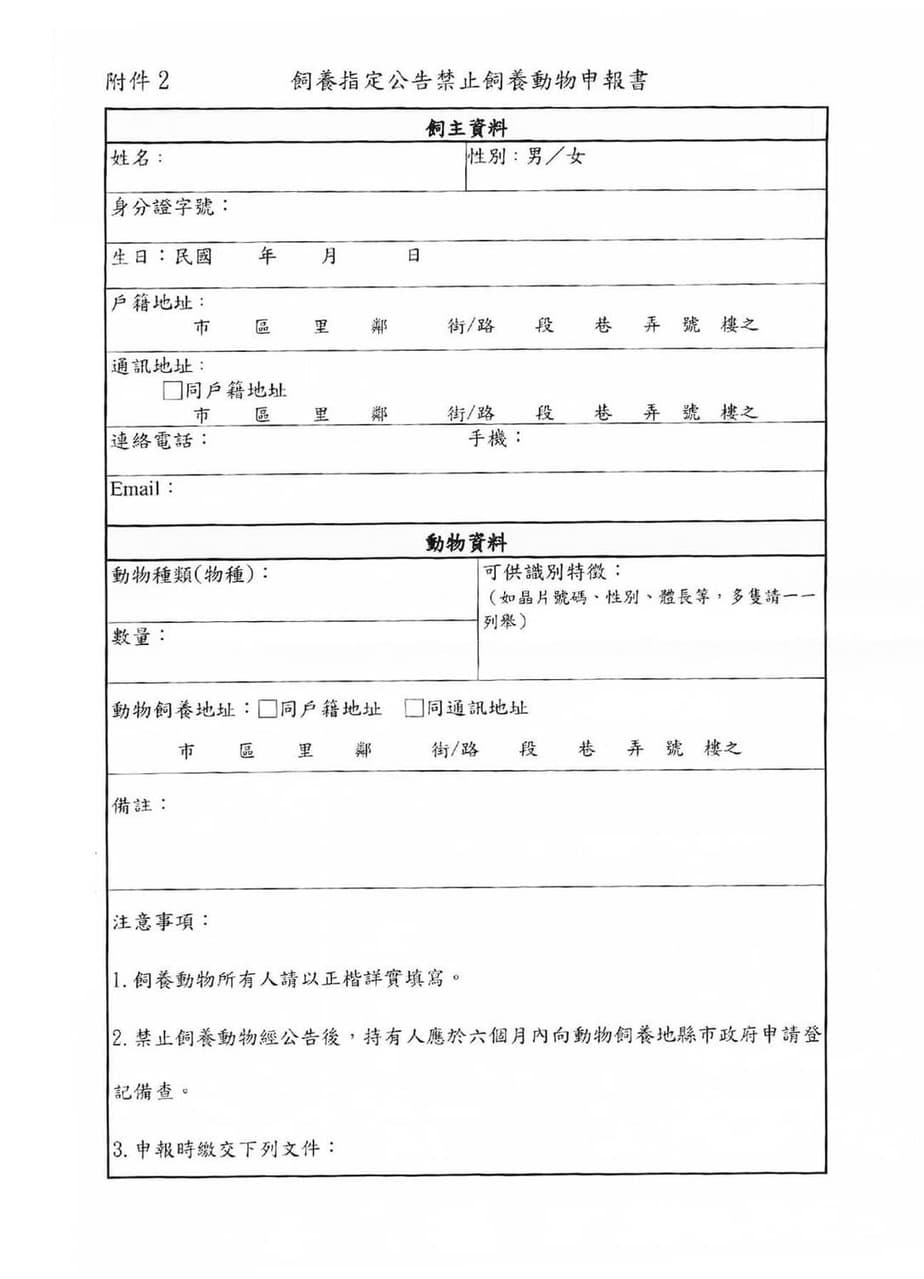 附件 2 飼養指定公告禁止飼養動物申報書
飼主資料
姓名： 性別：男／女
身分證字號：
生日：民國 年 月 日
戶籍地址：
市 區 里 鄰 街/路 段 巷 弄 號 樓之
通訊地址：
□同戶籍地址
市 區 里 鄰 街/路 段 巷 弄 號 樓之
連絡電話： 手機：
Email：
動物資料
動物種類(物種)： 可供識別特徵：
（如晶片號碼、性別、體長等，多隻請一一
列舉）
數量：
動物飼養地址：□同戶籍地址 □同通訊地址
市 區 里 鄰 街/路 段 巷 弄 號 樓之
備註：
注意事項：
1. 飼養動物所有人請以正楷詳實填寫。
2. 禁止飼養動物經公告後，持有人應於六個月內向動物飼養地縣市政府申請登
記備查。
3. 申報時繳交下列文件：